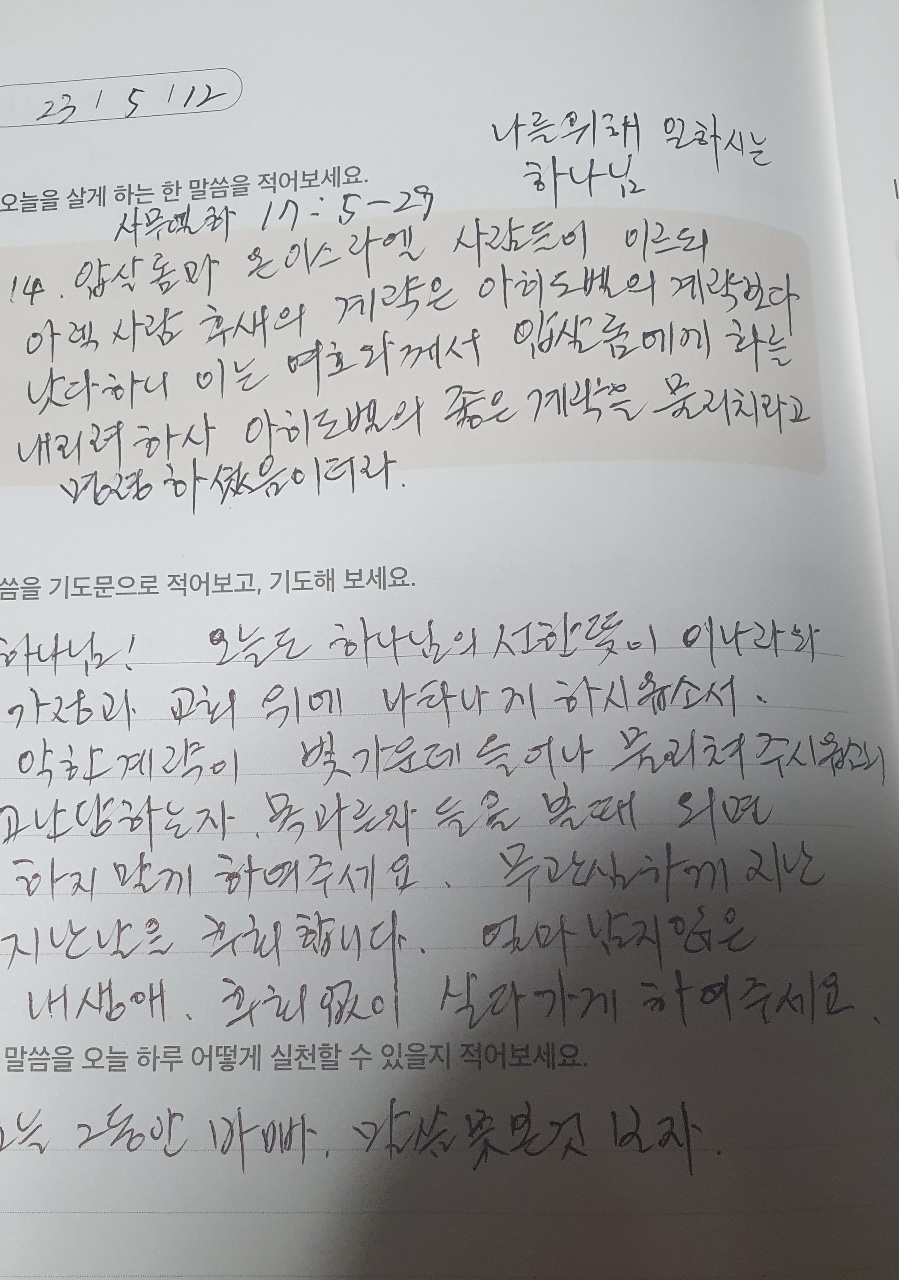 23 / 5 / 12
나를위해 일하시는
하나님
오늘을 살게 하는 한 말씀을 적어보세요.
사무엘하 17:5-29
14. 압살롬과 온이스라엘 사람들이 이르되
아렉 사람 후새의 계략은 아히도벨의 계략보다
낫다하니 이는 여호와께서 압살롬에게 화를
내리려 하사 아히도벨의 좋은 계략을 물리치라고
명령하셨음이더라.
씀을 기도문으로 적어보고, 기도해 보세요.
하나님! 오늘도 하나님의 선한뜻이 이나라와
가정과 교회 위에 나타나게 하시옵소서.
악한계략이 빛가운데 들어나 물리쳐주시옵소서
고난당하는자. 목마른자 들을 볼때 외면
하지 말게 하여주세요. 무관심하게 지난
지난날을 후회합니다. 얼마남지않은
내생애. 후회없이 살다가게 하여주세요.
말씀을 오늘 하루 어떻게 실천할 수 있을지 적어보세요.
오늘 그동안 바빠. 말씀못본것 보자.